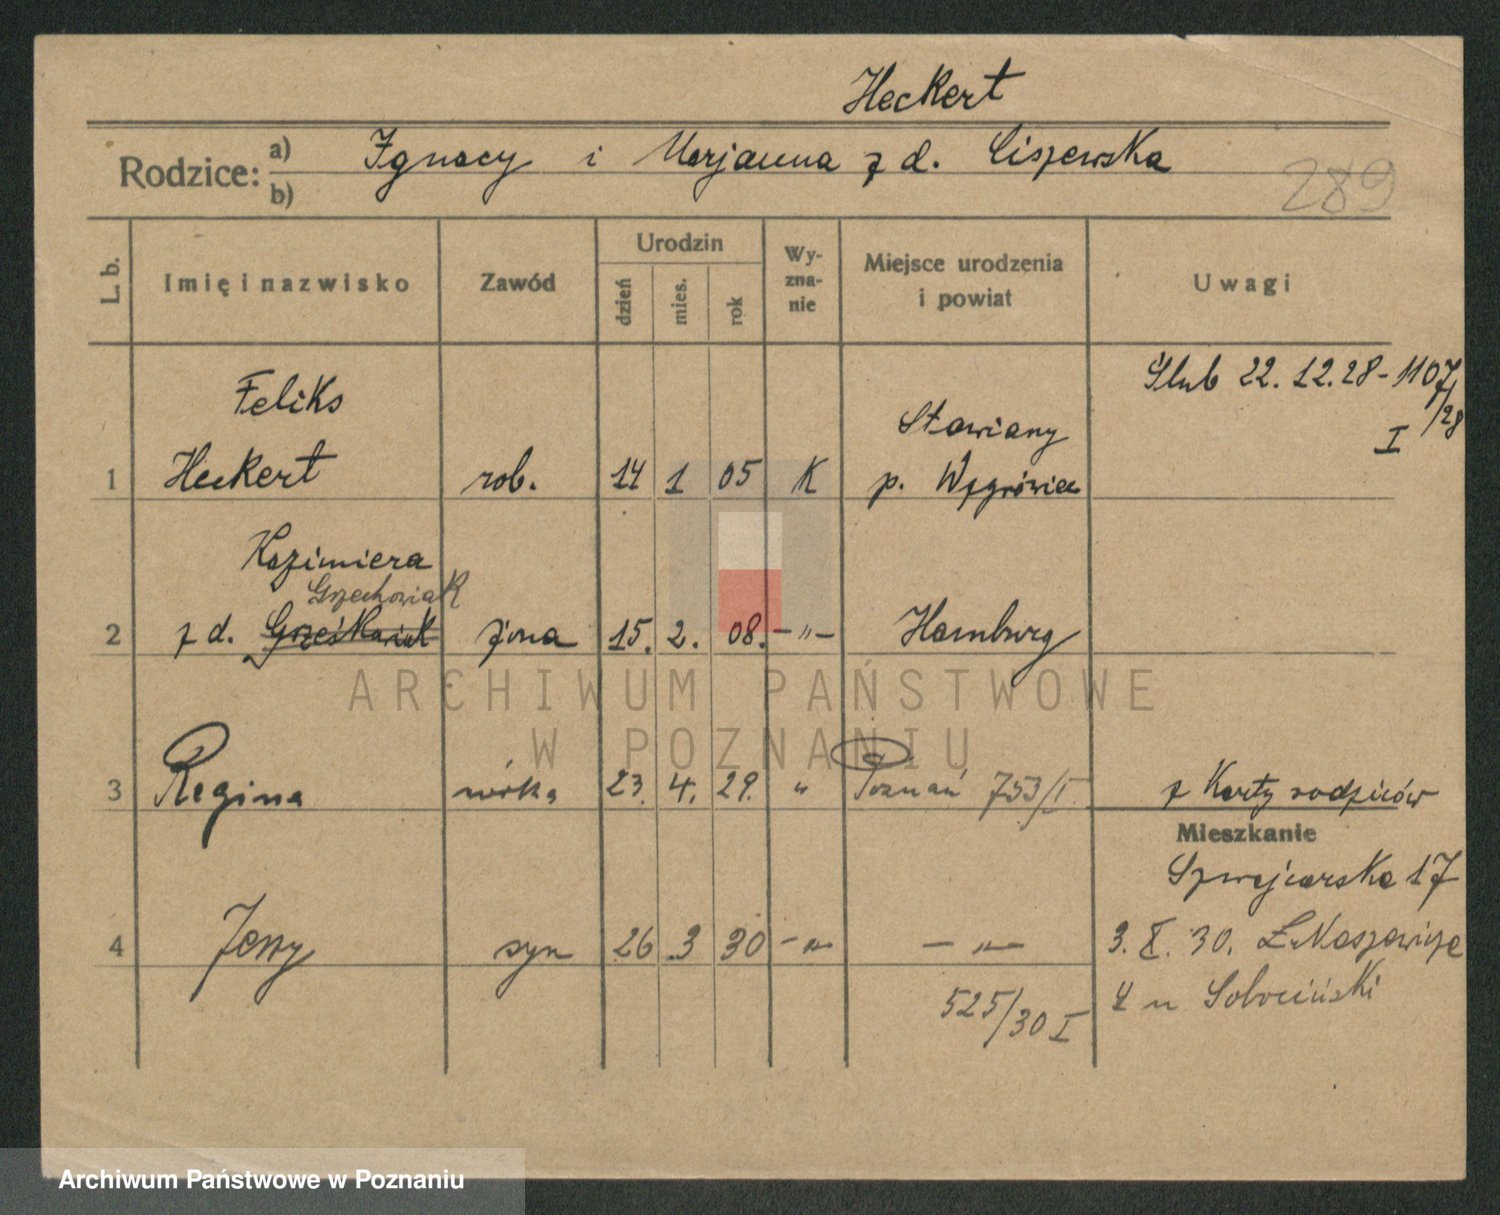 Heckert
Rodzice: a) Ignacy i Marjanna z d. Ciszewska
b)
289
L. b. Imię i nazwisko Zawód Urodzin dzień mies. rok Wy-zna-nie Miejsce urodzenia i powiat Uwagi
Ślub 22. 12. 28 - 1107/28
I
Feliks
Stawiany
1 Heckert rob. 14 1 05 K p. Wągrówiec
Kazimiera
Grzechowiak
2 z d. Grześkowiak żona 15. 2. 08. -"- Hamburg
3 Regina córka 23. 4. 29. " Poznań 753/I z Karty rodziców
Mieszkanie
Szwajcarska 17
4 Jerzy syn 26 3 30 -"- -"- 3. X. 30.
525/30 I
u Sobociński
ARCHIWUM PAŃSTWOWE
W POZNANIU
Archiwum Państwowe w Poznaniu